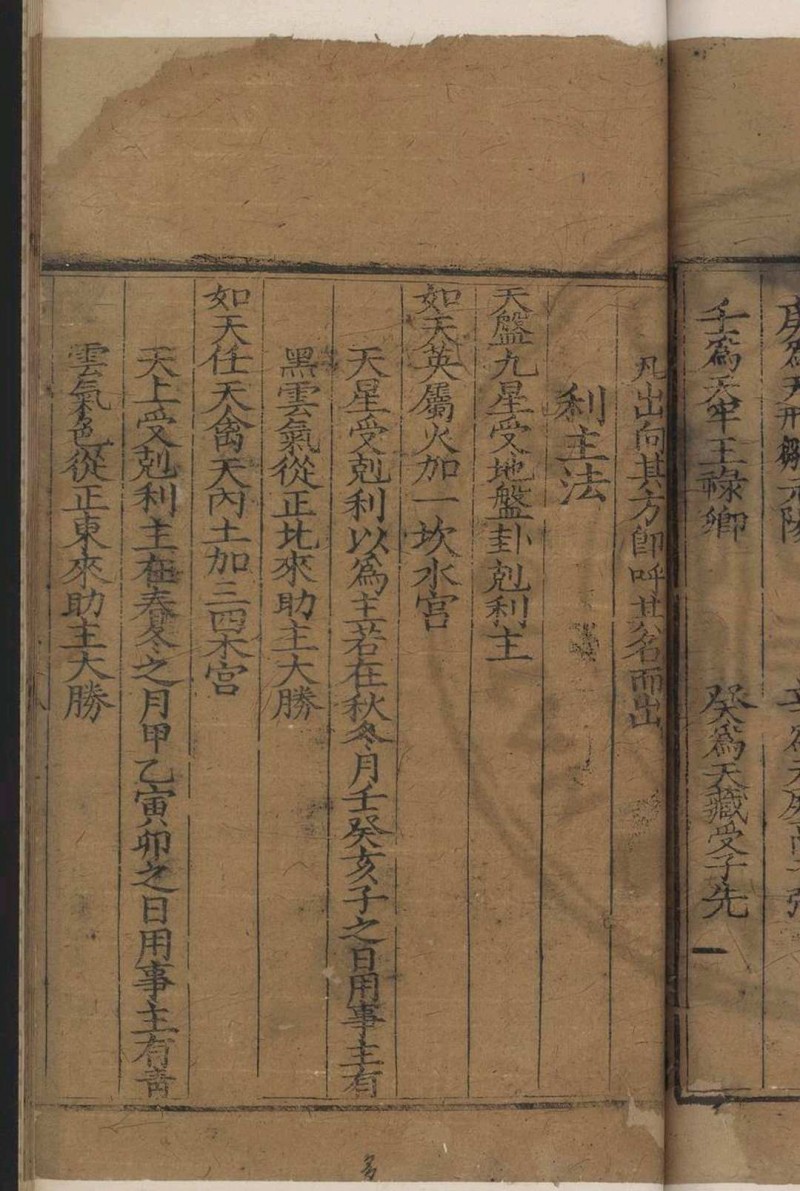 壬爲天牢王祿卿　癸爲天藏受子先
凡出向其方卽呼其名而出
利主法
天盤九星受地盤卦剋利主
如天英屬火加一坎水宮
天星受剋利以爲主若在秋冬月壬癸亥子之日用事主有
黑雲氣從正北來助主大勝
如天任天禽天內土加三四木宮
天上受剋利主在春冬之月甲乙寅卯之日用事主有靑
雲氣色從正東來助主大勝